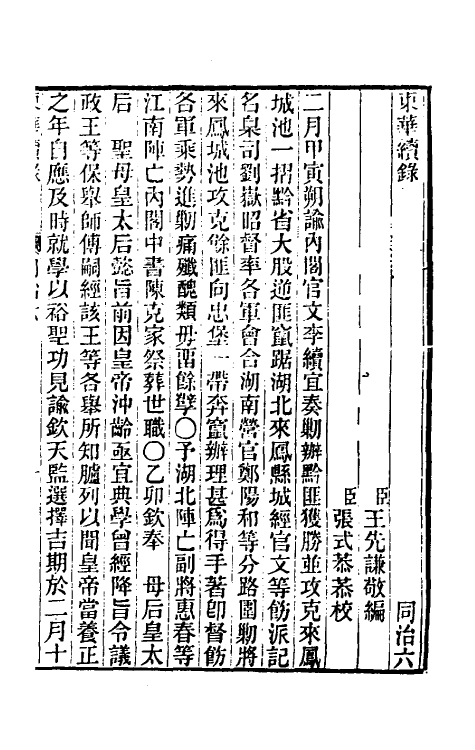 東華續錄 同治六
臣王先謙敬編
臣張式恭恭校
二月甲寅朔諭內閣官文李續宜奏勦辦黔匪獲勝並攻克來鳳
城池一摺黔省大股逆匪竄踞湖北來鳳縣城經官文等飭派記
名臬司劉嶽昭督率各軍會合湖南營官鄭陽和等分路圍勦將
來鳳城池攻克餘匪向忠堡一帶奔竄辦理甚爲得手著卽督飭
各軍乘勢進勦痛殲醜類毋畱餘孽〇予湖北陣亡副將惠春等
江南陣亡內閣中書陳克家祭葬世職〇乙卯欽奉 母后皇太
后 聖母皇太后懿旨前因皇帝沖齡亟宜典學曾經降旨令議
政王等保舉師傅嗣經該王等各舉所知臚列以聞皇帝當養正
之年自應及時就學以裕聖功見諭欽天監選擇吉期於二月十